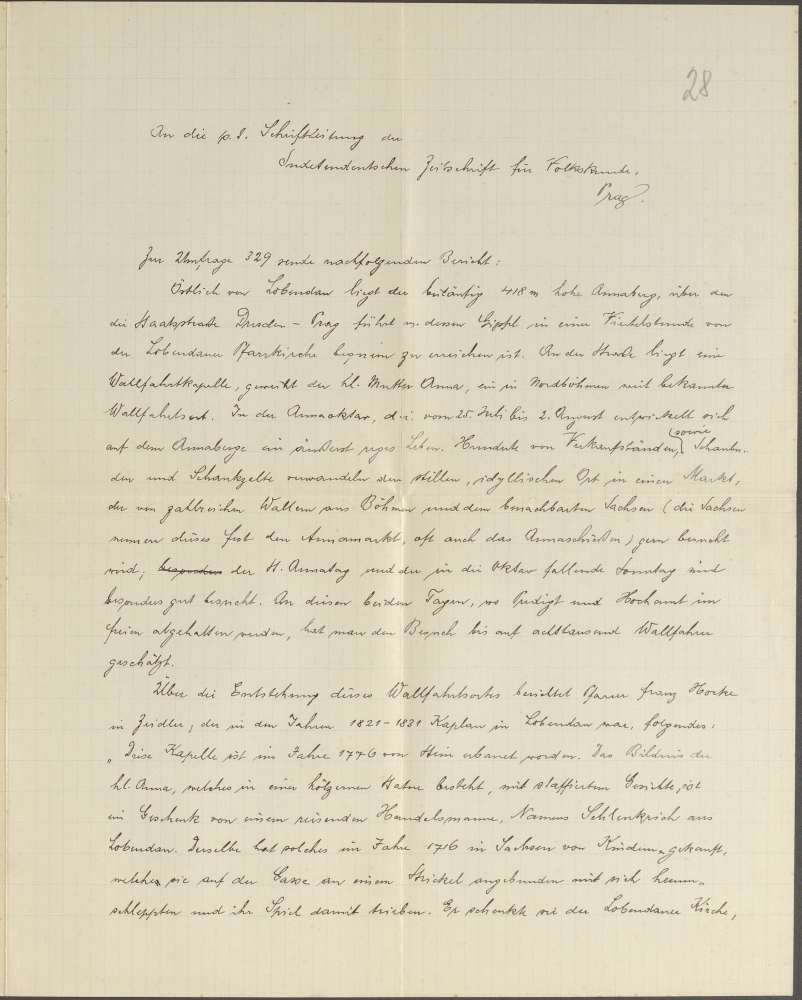 28
An die p. t. Schriftleitung der
Sudetendeutschen Zeitschrift für Volkskunde,
Prag.
Zur Umfrage 329 sende nachfolgenden Bericht:
Östlich von Lobendau liegt der beiläufig 418 m hohe Annaberg, über den
die Staatsstraße Dresden - Prag führt u. dessen Gipfel in einer Viertelstunde von
der Lobendauer Pfarrkirche bequem zu erreichen ist. An der Straße liegt eine
Wallfahrtskapelle, geweiht der hl. Mutter Anna, ein in Nordböhmen weit bekannter
Wallfahrtsort. In der Annaoktav, d. i. vom 25. Juli bis 2. August entwickelt sich
auf dem Annaberge ein äußerst reges Leben. Hunderte von Verkaufständen, sowie Schaubu-
den und Schankzelte verwandeln den stillen, idyllischen Ort in einen Markt,
der von zahlreichen Wallern aus Böhmen und dem benachbarten Sachsen (die Sachsen
nennen dieses Fest den Annamarkt, oft auch das Annaschießen) gern besucht
wird; besonders der St. Annatag und der in die Oktav fallende Sonntag sind
besonders gut besucht. An diesen beiden Tagen, wo Predigt und Hochamt im
freien abgehalten werden, hat man den Besuch bis auf achttausend Wallfahrer
geschätzt.
Über die Entstehung dieses Wallfahrtsortes berichtet Pfarrer Franz Hocke
in Zeidler, der in den Jahren 1821-1831 Kaplan in Lobendau war, folgendes:
„Diese Kapelle ist im Jahre 1776 von Stein erbauet worden. Das Bildnis der
hl. Anna, welches in einer hölzernen Statue besteht, mit staffiertem Gesichte, ist
ein Geschenk von einem reisenden Handelsmanne, Namens Schlenkrich aus
Lobendau. Derselbe hat solches im Jahre 1716 in Sachsen von Kindern gekauft,
welches sie auf der Gasse an einem Strickel angebunden mit sich herum-
schleppten und ihr Spiel damit trieben. Er schenkte sie der Lobendauer Kirche,